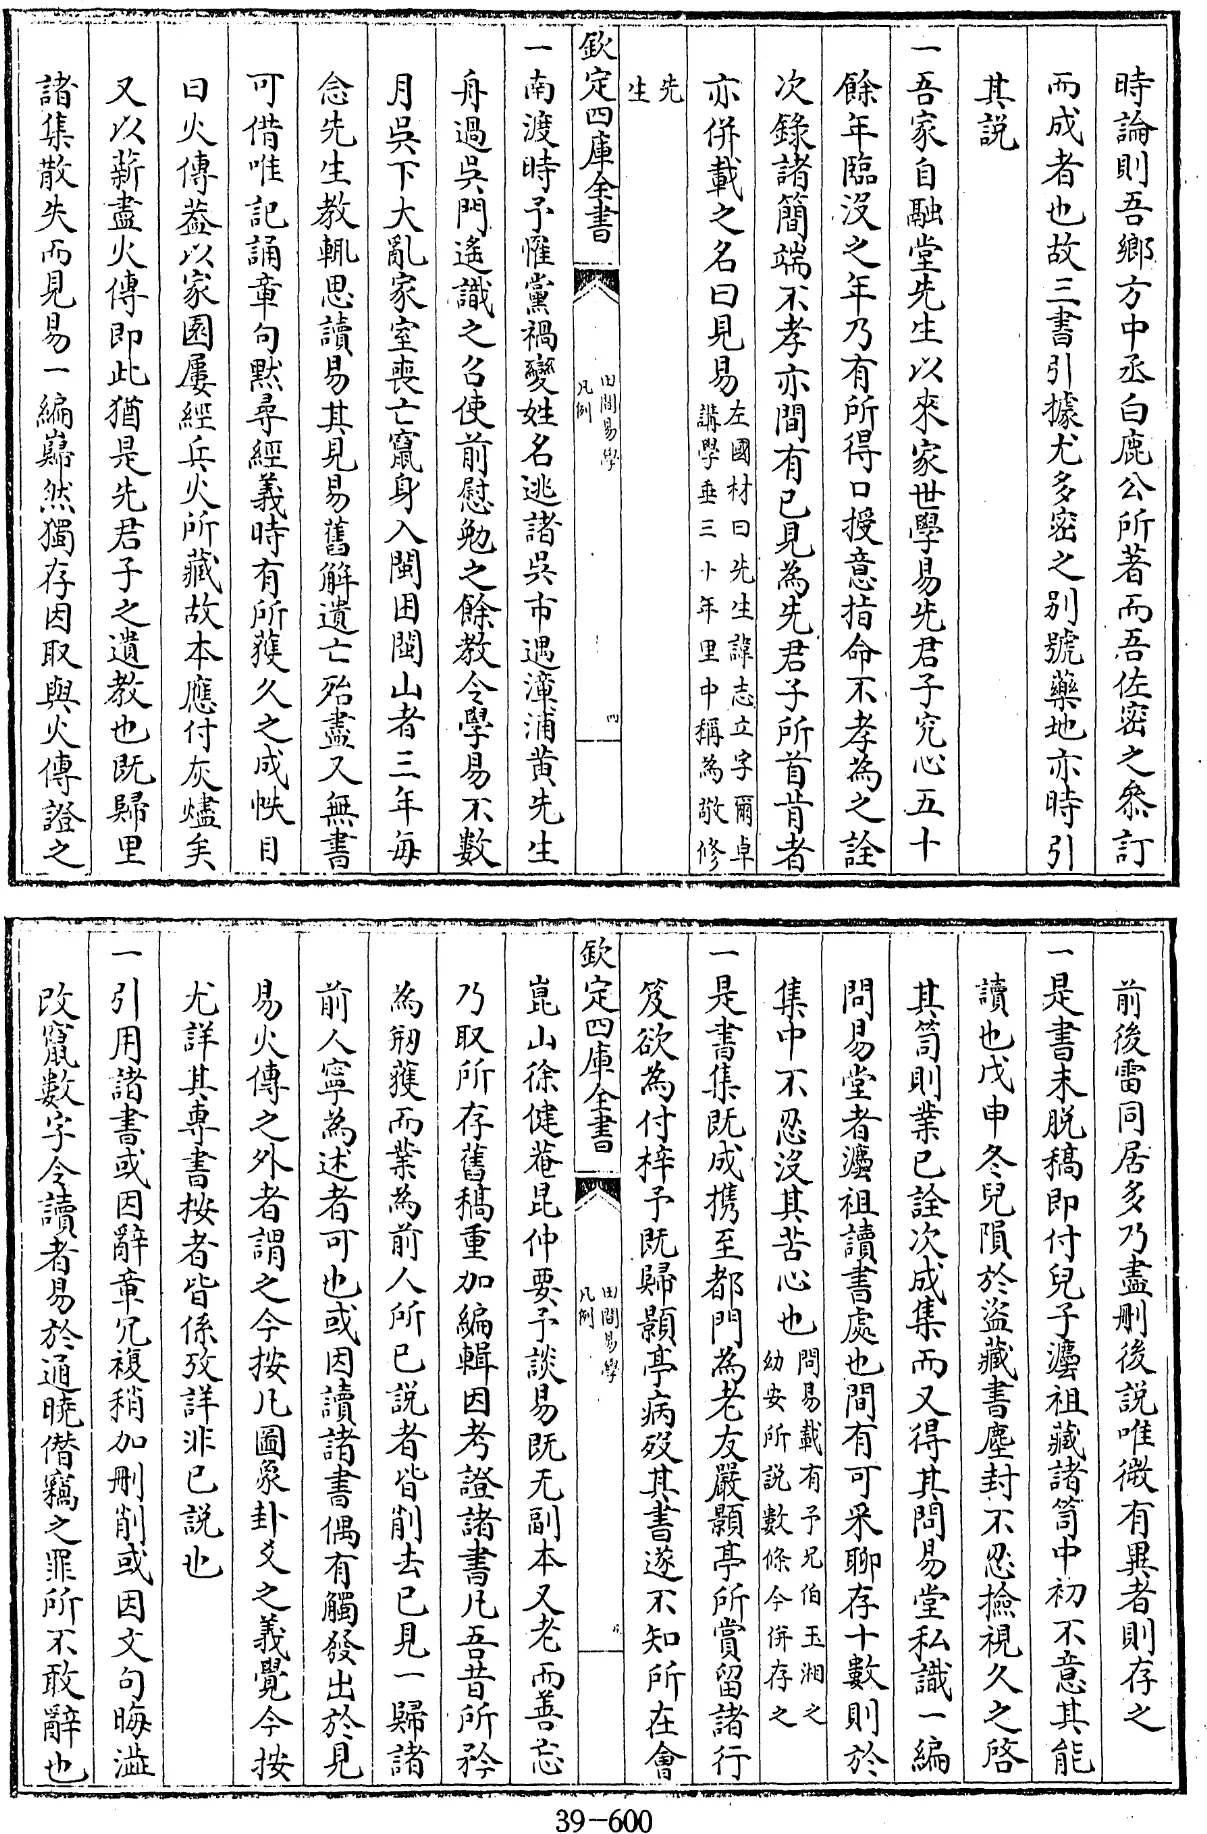 時論則吾鄉方中丞白鹿公所著而吾佐密之叅訂
而成者也故三書引據尤多密之别號藥地亦時引
其説
一吾家自融堂先生以來家世學易先君子究心五十
餘年臨沒之年乃有所得口授意指命不孝為之詮
次錄諸簡端不孝亦間有已見為先君子所首肯者
亦併載之名曰見易左國材曰先生諱志立字爾卓
講學垂三十年里中稱為敬修
先
生
欽定四庫全書
田間易學
凡例
四
一南渡時予惟黨禍變姓名逃諸吳市遇漳浦黄先生
舟過吳門遙識之召使前慰勉之餘教令學易不數
月吳下大亂家室喪亡竄身入閩困閩山者三年每
念先生教輒思讀易其見易舊解遺亡殆盡又無書
可借唯記誦章句默尋經義時有所獲久之成帙目
曰火傳葢以家園屢經兵火所藏故本應付灰燼矣
又以薪盡火傳即此猶是先君子之遺教也既歸里
諸集散失而見易一編巋然獨存因取與火傳證之
前後雷同居多乃盡刪後説唯微有異者則存之
一是書未脱稿即付兒子灋祖藏諸笥中初不意其能
讀也戊申冬兒隕於盜藏書塵封不忍撿視久之啓
其笥則業已詮次成集而又得其問易堂私識一編
問易堂者灋祖讀書處也間有可采聊存十數則於
集中不忍沒其苦心也問易載有予兄伯玉湘之
幼安所説數條今併存之
一是書集既成携至都門為老友嚴顥亭所賞留諸行
笈欲為付梓予既歸顥亭病歿其書遂不知所在會
欽定四庫全書
田間易學
凡例
崑山徐健菴昆仲要予談易既无副本又老而善忘
乃取所存舊稿重加編輯因考證諸書凡吾昔所矜
為剏獲而業為前人所已説者皆削去已見一歸諸
前人寧為述者可也或因讀諸書偶有觸發出於見
易火傳之外者謂之今按凡圖象卦爻之義覺今按
尤詳其専書按者皆係攷詳非已説也
一引用諸書或因辭章冗複稍加刪削或因文句晦澁
改竄數字令讀者易於通曉僭竊之罪所不敢辭也
39-600